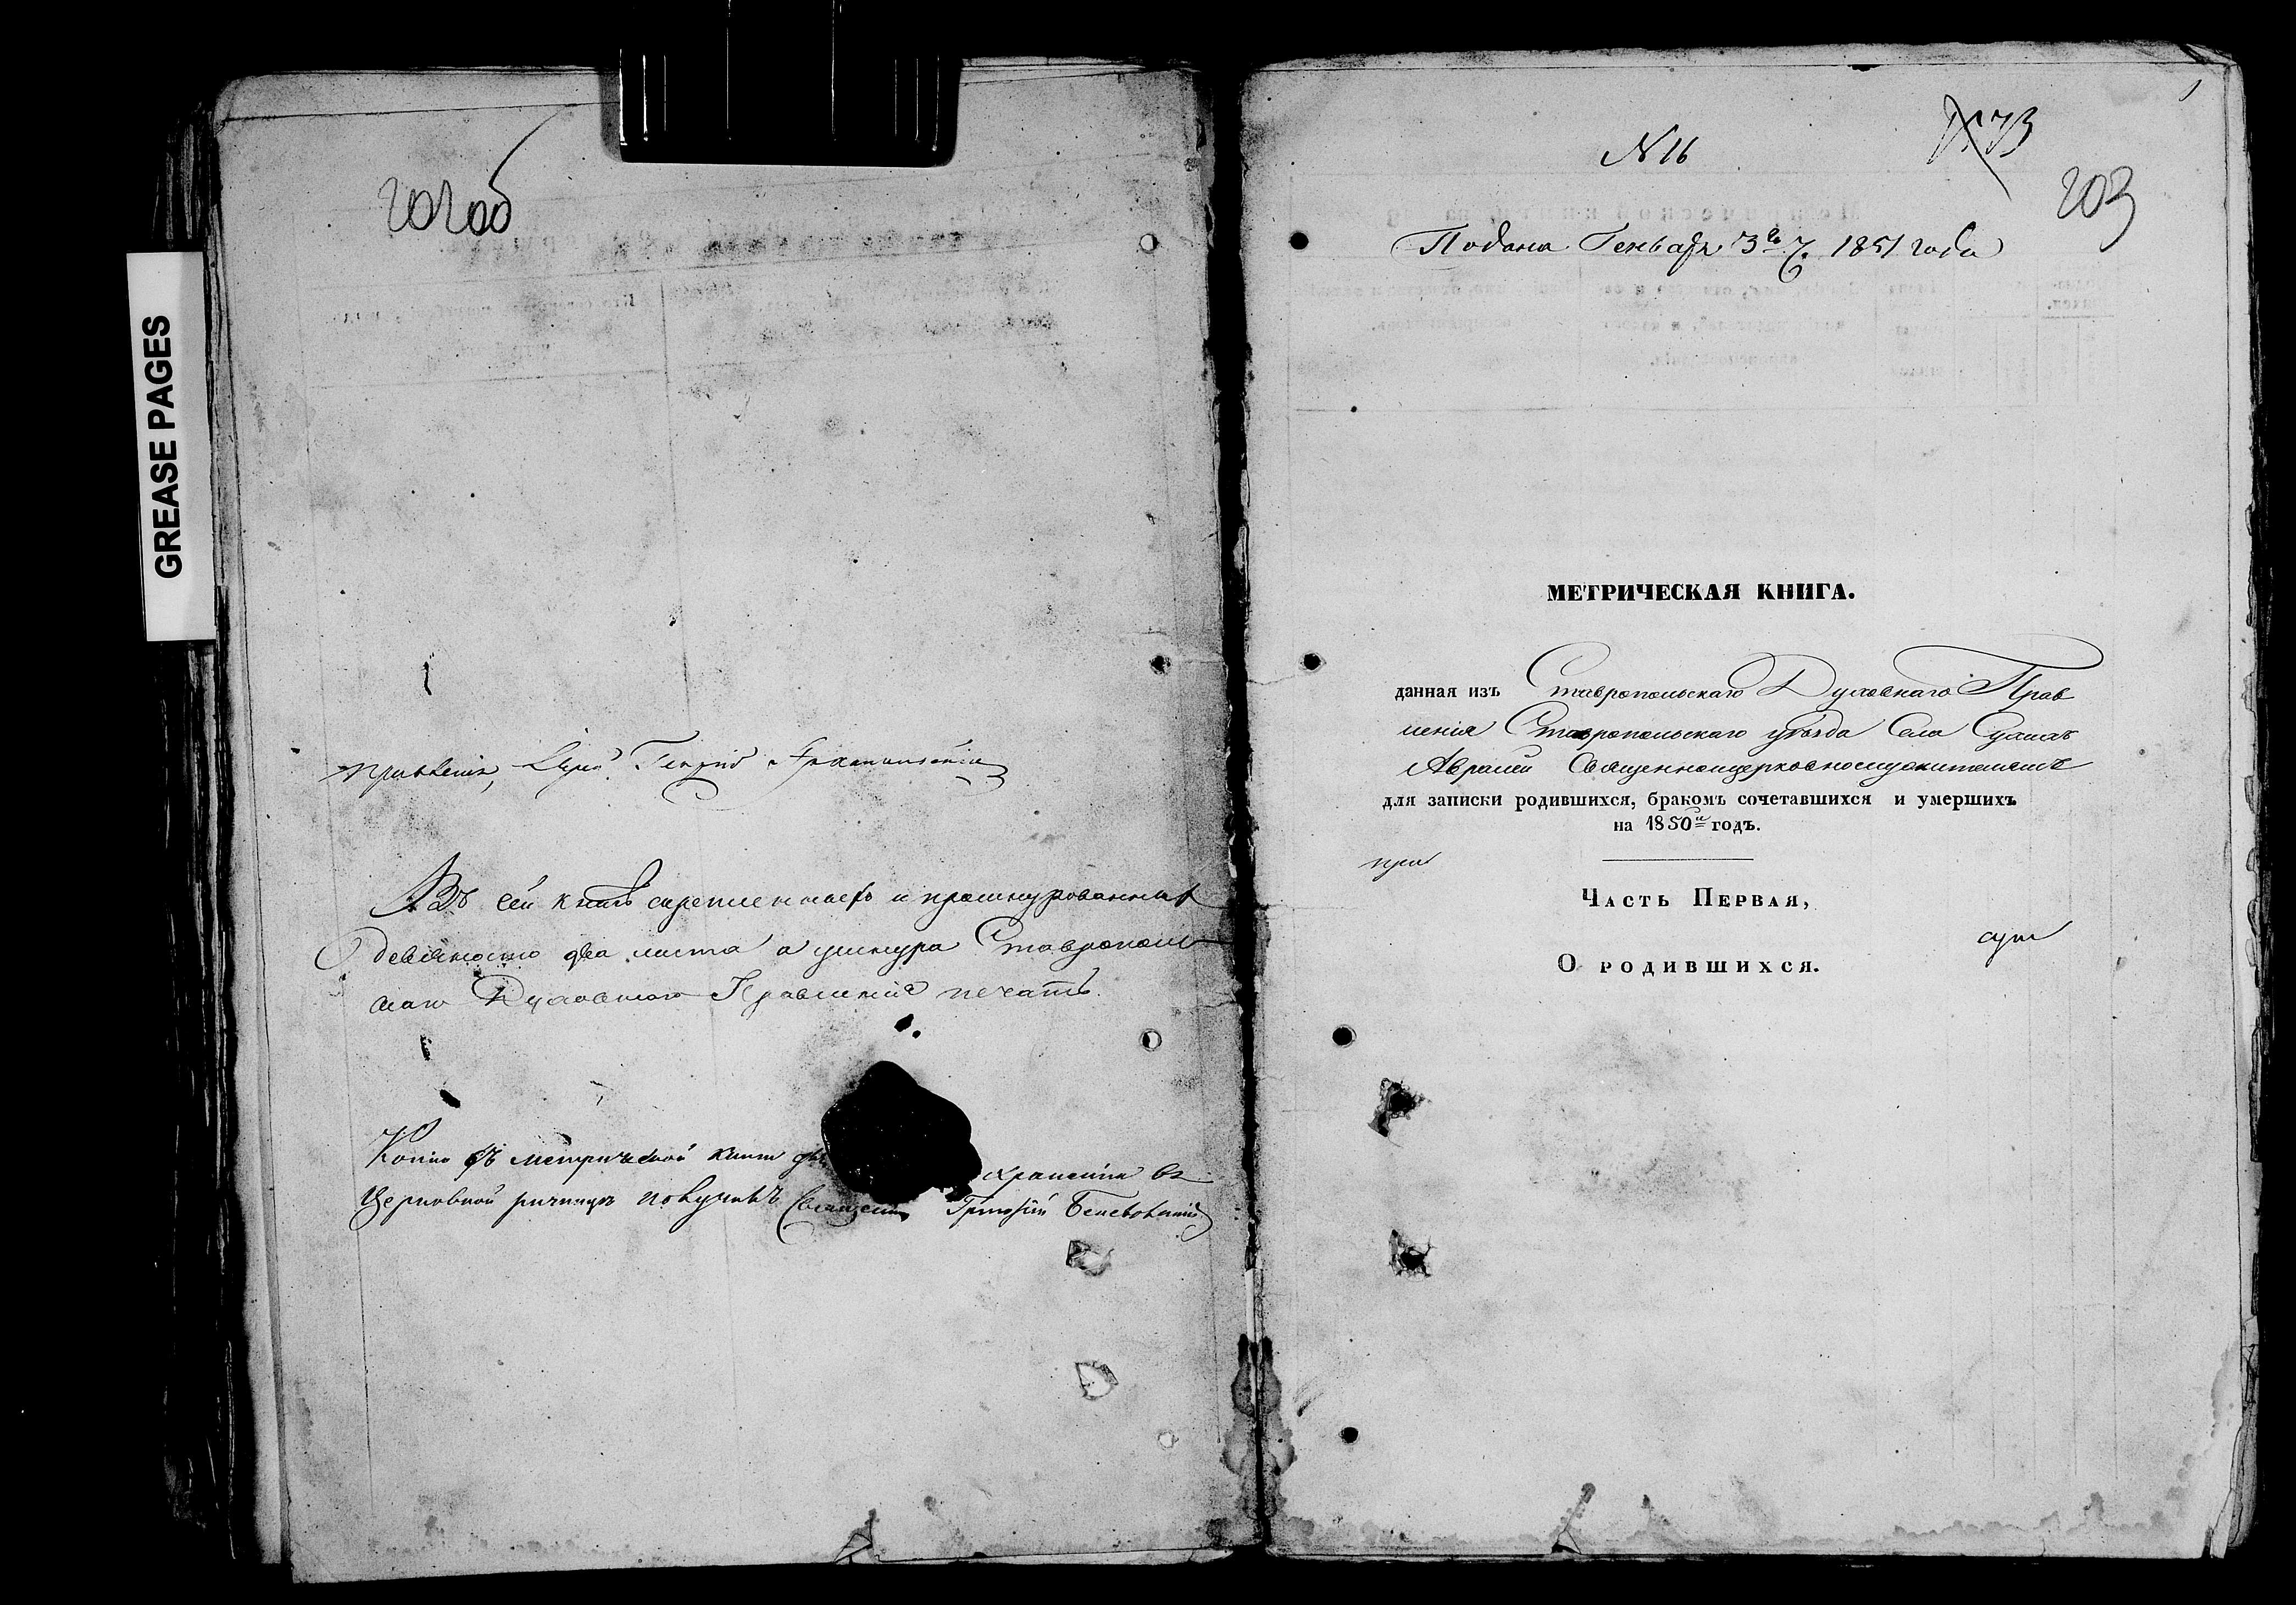 GREASE PAGES
202об
правленія, Іерей Георгій Архангельскій
Въ сей книгѣ скрепленныхъ и прошнурованныхъ
девяносто два листа а у шнура Ставрополь
скаго Духовнаго Правленія печать.
Копію съ метрической книги для храненія въ
Церковной ризницѣ получилъ Священникъ Григорій
1
№ 73
N 16
203
Подана Генваря 3го ч. 1851 года
МЕТРИЧЕСКАЯ КНИГА.
данная изъ Ставропольскаго Духовнаго Прав
ленія Ставропольскаго уѣзда Села
Священноцерковнослужителямъ
для записки родившихся, бракомъ сочетавшихся и умершихъ
на 1850й годъ.
при
ЧАСТЬ ПЕРВАЯ,
сут
О РОДИВШИХСЯ.